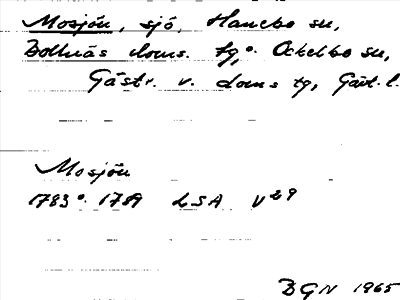 Mosjön, sjö, Hanebo sn,
Bollnäs doms. tg, o. Ockelbo sn,
Gästr. v. doms tg, Gävl. l.
Mosjön
1783 o. 1789 LSA V29
BGN 1965